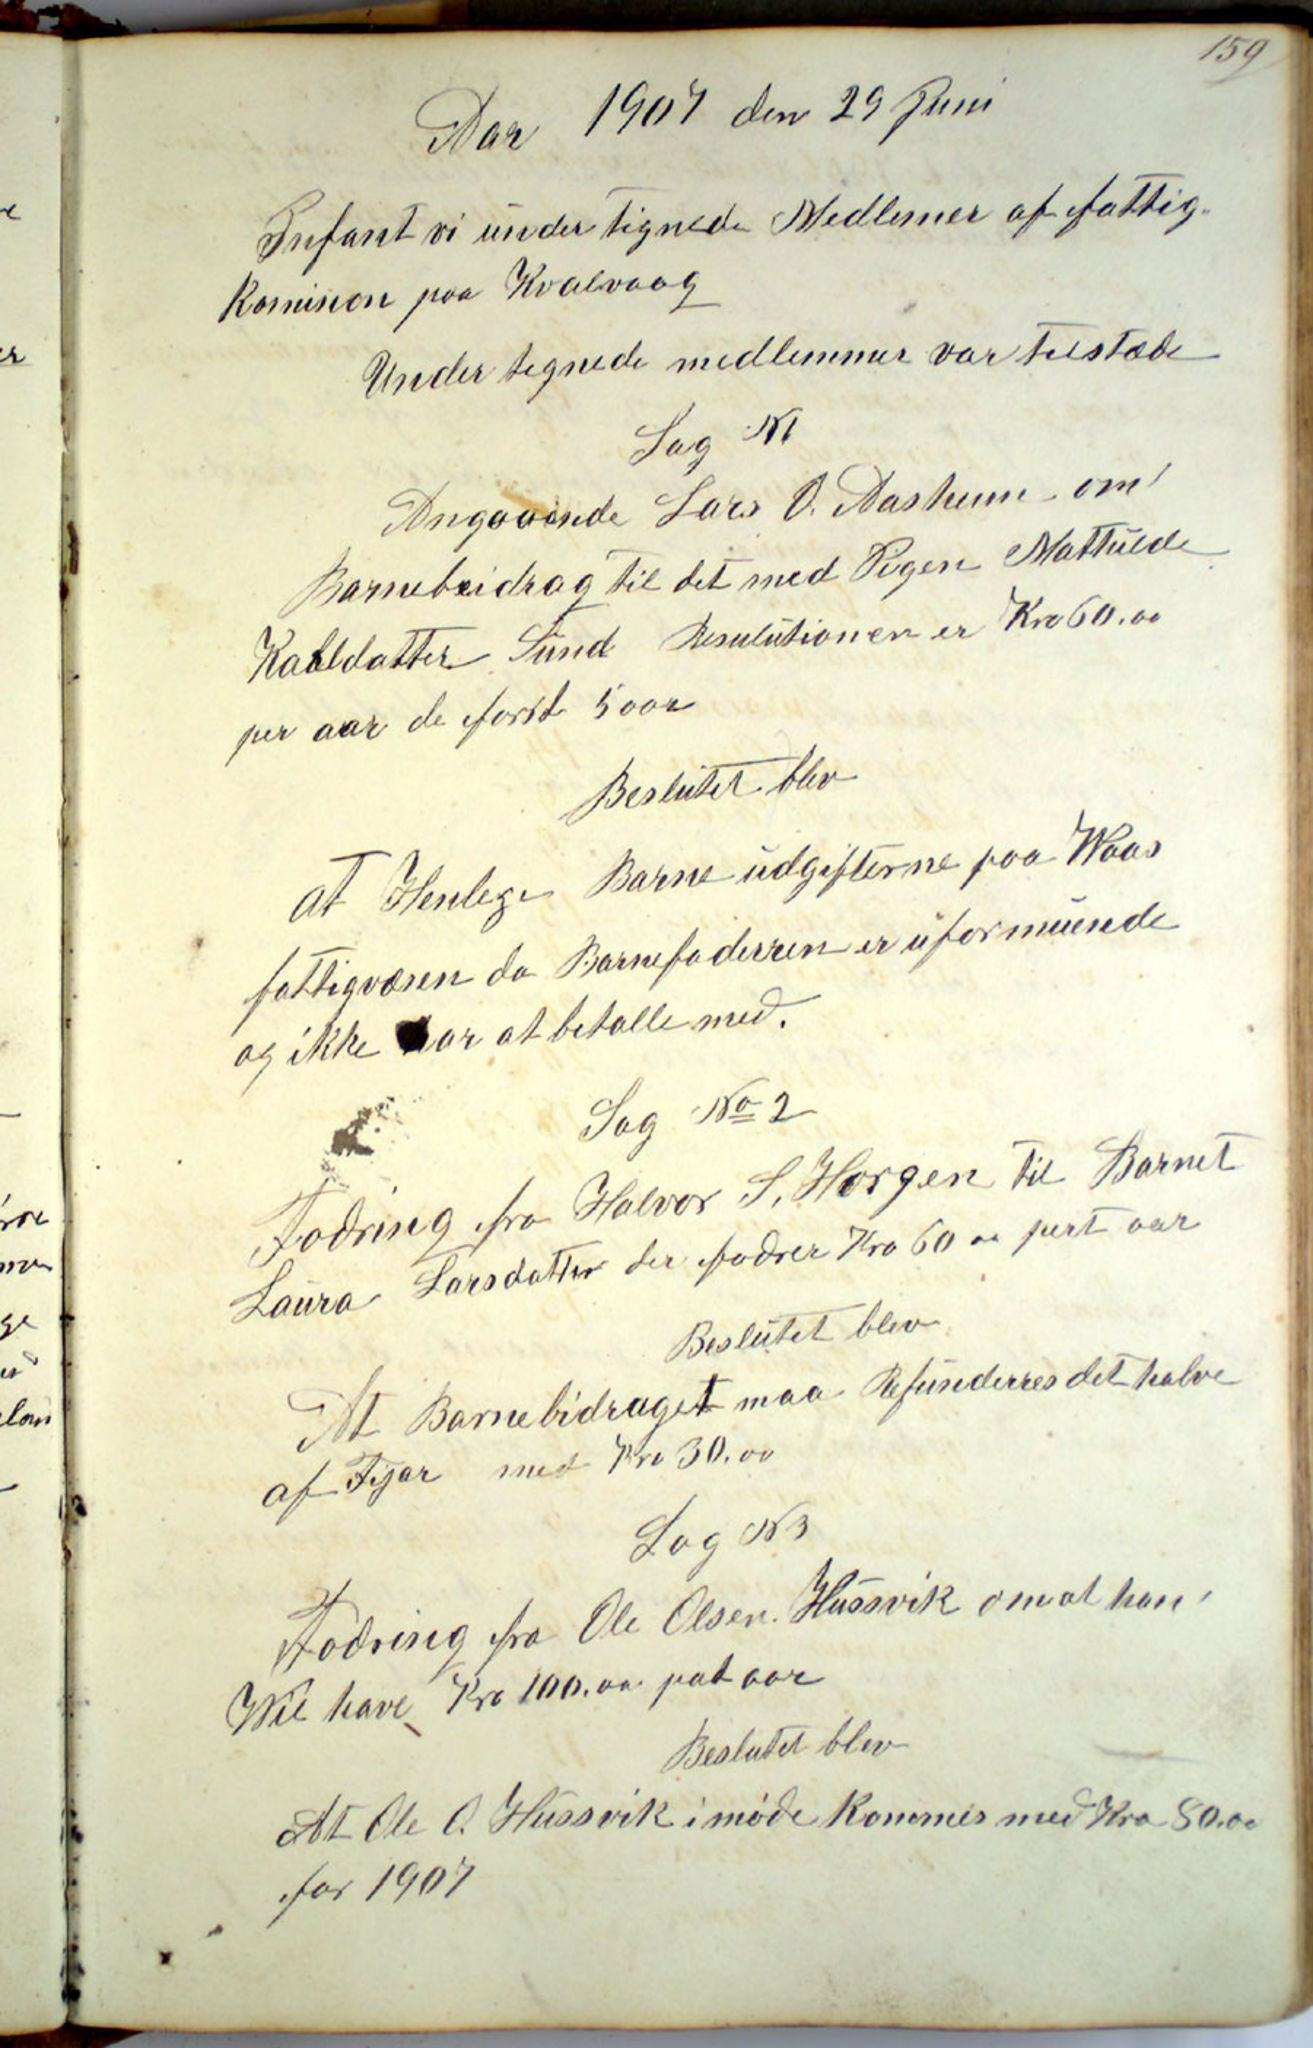 159
Aar 1907 den 29 Juni
Infant vi under tignede Medlemer af fattig-
Komision paa Kvalvaag
Under tegnede medlemmer var tilstæde
Sag N1
Angaaende Lars O. Aasheim om
Barnebeidrag til det med Pigen Mathilde
Karldatter Sund Resulutionen er Kro 60.00
per aar de først 5 aar
Beslutet blev
at Henlege Barne udgifterne paa Waas
fattigvæsen da Barnefaderren er uformuende
og ikke har at betalle med.
Sag No 2
Fodring fra Halvor S. Horgen til Barnet
Laura Larsdatter der fodrer Kro 60 00 pert aar
Beslutet blev
At Barnebidraget maa Refunderres det halve
af Fijar med Kro 30.00
Sag N3
Fodring fra Ole Olsen Hussvik om at han
Wil have Kro 100.00 pat aar
Beslutet blev
At Ole O. Hussvik i møde Kommes med Kro 80.00
for 1907